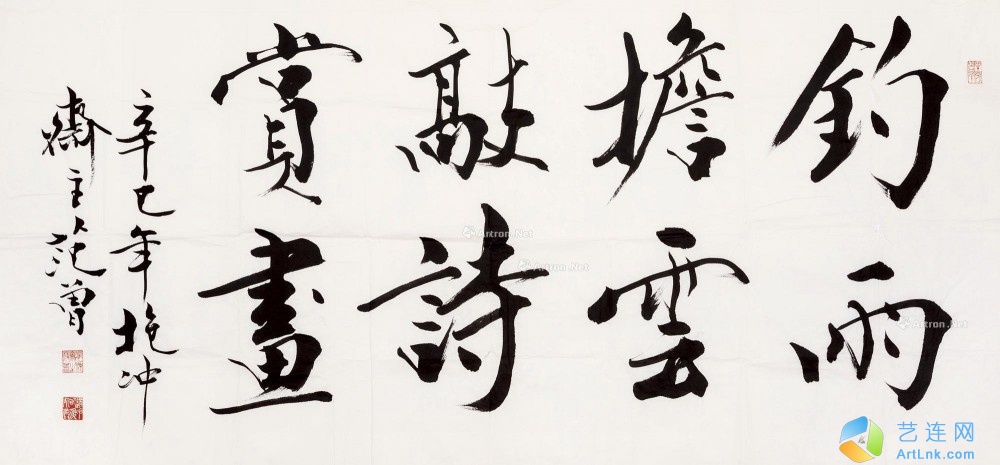 釣雨
擔雲
敲詩
賞畫
辛巳年抱冲
齋主范曾
Artron.Net
Artron.Net
Artron.Net
艺连网
ArtLnk.com